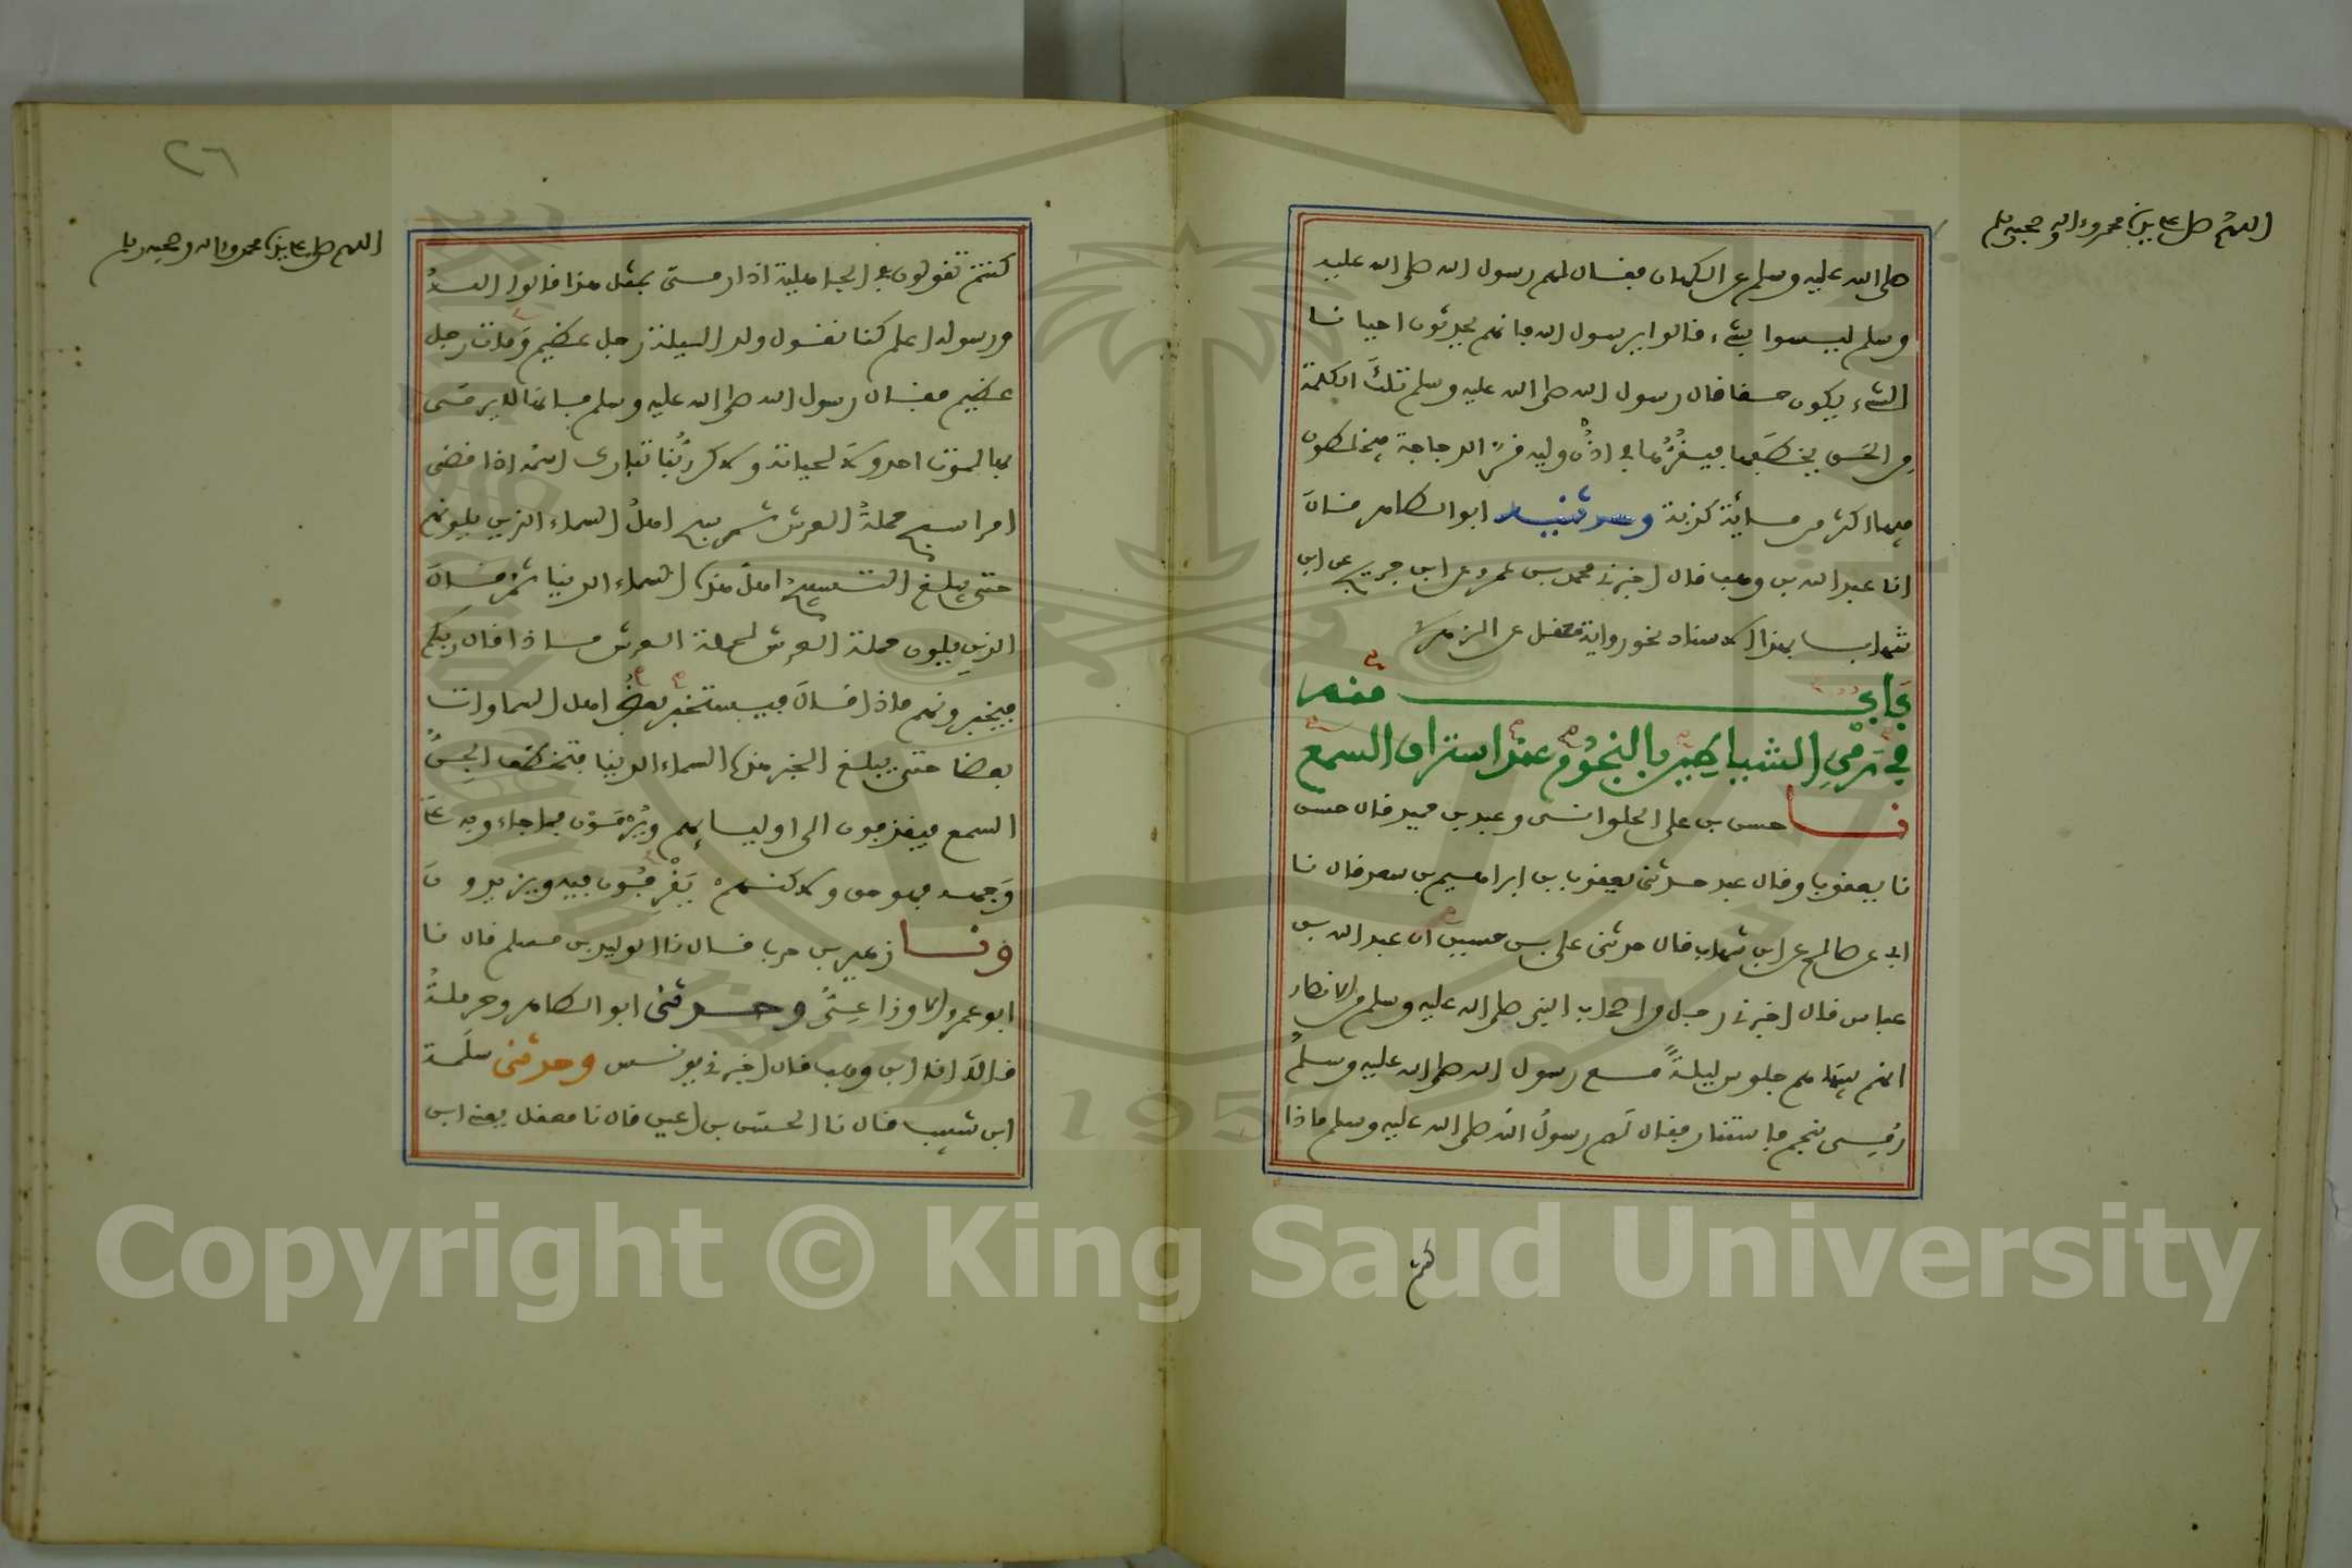 اللهم صل على سيدنا محمد وءاله وصحبه وسلم
صلى الله عليه وسلم عن الكهان فقال لهم رسول الله صلى الله عليه
وسلم ليسوا بشيء قالوا يرسول الله فإنهم يحدثون احيانا
الشيء يكون حقا قال رسول الله صلى الله عليه وسلم تلك الكلمة
من الجن يخطفها فيقرها في اذن وليه قر الدجاجة فيخلطون
فيها اكثر من مائة كذبة وحدثنيه ابو الطاهر قال
انا عبد الله بن وهب قال اخبرني محمد بن عمرو عن ابن جريج عن ابن
شهاب بهذا الاسناد نحو رواية معقل عن الزهري
باب منه
في رمي الشياطين بالنجوم عند استراق السمع
نا حسن بن علي الحلواني وعبد بن حميد قال حسن
نا يعقوب وقال عبد حدثني يعقوب بن إبراهيم بن سعد قال نا
ابي عن صالح عن ابن شهاب قال حدثني علي بن حسين ان عبد الله بن
عباس قال اخبرني رجل من اصحاب النبي صلى الله عليه وسلم من الانصار
انهم بينما هم جلوس ليلة مع رسول الله صلى الله عليه وسلم
رمي بنجم فاستنار فقال لهم رسول الله صلى الله عليه وسلم ماذا
كنتم
٢٦
اللهم صل على سيدنا محمد وءاله وصحبه وسلم
كنتم تقولون في الجاهلية اذا رمي بمثل هذا قالوا الله
ورسوله اعلم كنا نقول ولد الليلة رجل عظيم ومات رجل
عظيم فقال رسول الله صلى الله عليه وسلم فإنها لا يرمى
بها لموت احد ولا لحياته ولاكن ربنا تبارك اسمه اذا قضى
امرا سبح حملة العرش ثم سبح اهل السماء الذين يلونهم
حتى يبلغ التسبيح اهل هذه السماء الدنيا ثم قال
الذين يلون حملة العرش لحملة العرش ماذا قال ربكم
فيخبرونهم ماذا قال فيستخبر بعض اهل السماوات
بعضا حتى يبلغ الخبر هذه السماء الدنيا فتخطف الجن
السمع فيقذفون الى اوليائهم ويرمون فما جاءوا به على
وجهه فهو حق ولاكنهم يقرفون فيه ويزيدون
ونا زهير بن حرب قال نا الوليد بن مسلم قال نا
ابو عمرو الاوزاعي وحدثني ابو الطاهر وحرملة
قالا انا ابن وهب قال اخبرني يونس وحدثني سلمة
ابن شبيب قال نا الحسن بن اعين قال نا معقل يعني ابن
Copyright © King Saud University